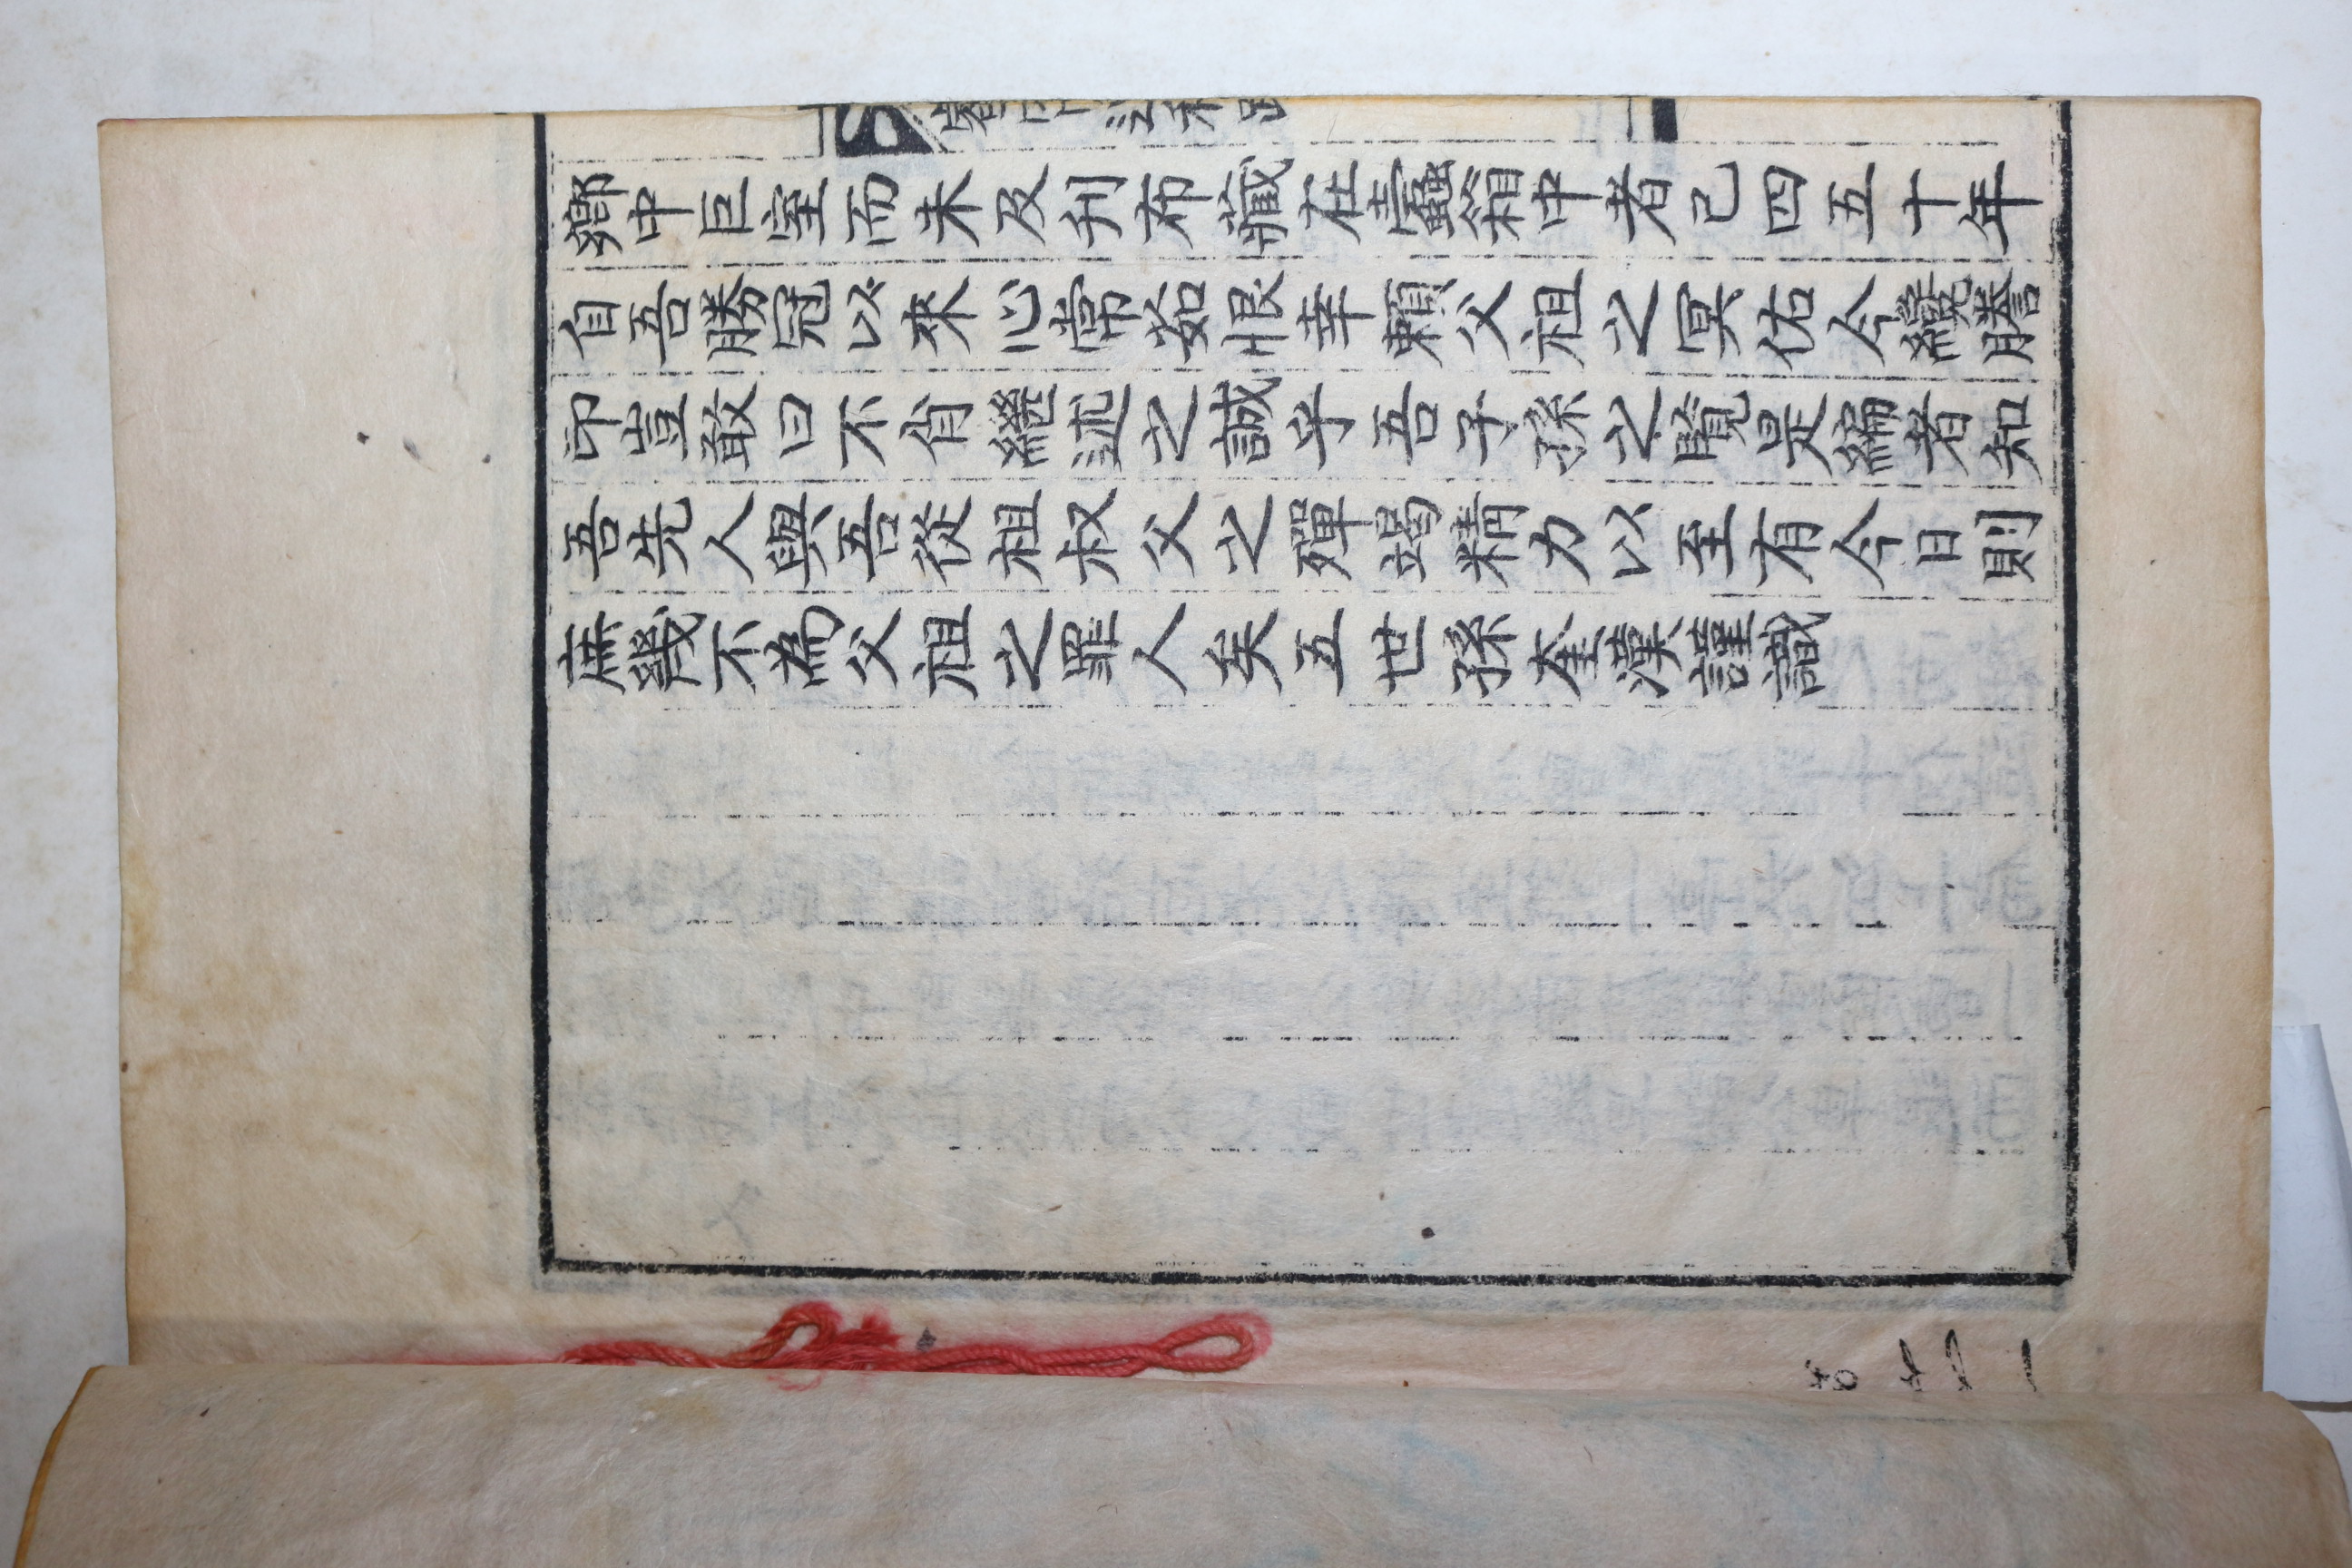 鄉中巨室而未及刋布藏在蠧箱中者已四五十年
自吾勝冠以來心常茹恨幸賴父祖之冥佑今纔謄
印豈敢曰不肖繼述之誠乎吾子孫之覧是編者知
吾先人與吾從祖叔父之殫竭精力以至有今日則
庶幾不為父祖之罪人矣五世孫奎漢謹識